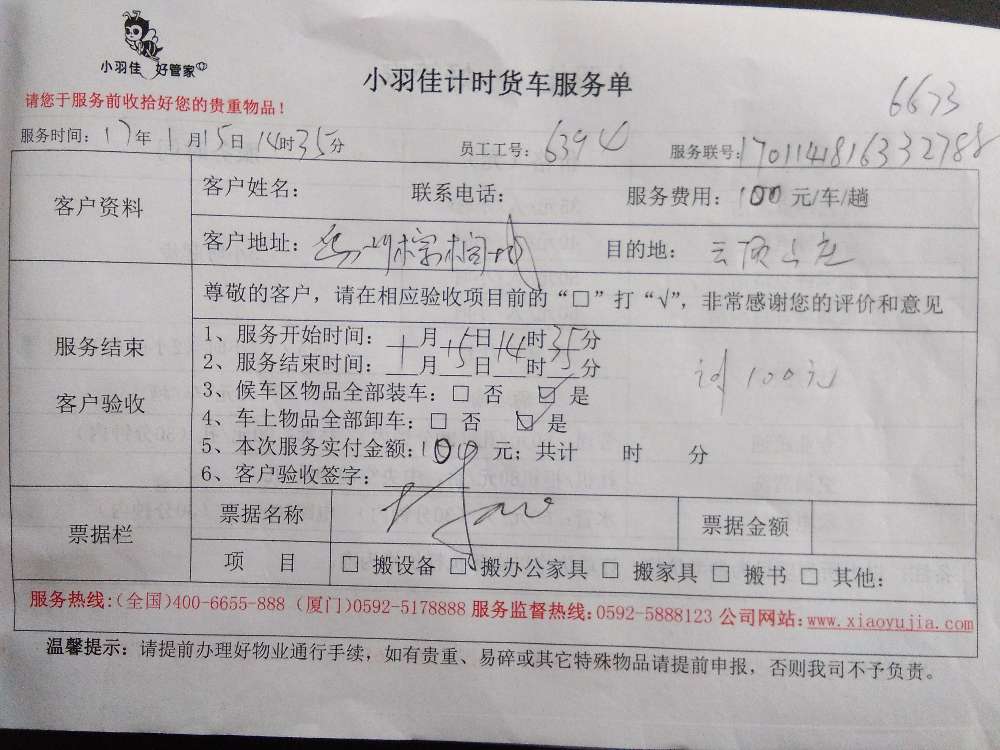 小羽佳 好管家
小羽佳计时货车服务单
6673
请您于服务前收拾好您的贵重物品！
服务时间：17年1月15日14时35分 员工工号：6394 服务联号：1701141816332788
客户资料
客户姓名： 联系电话： 服务费用：100元/车/趟
客户地址： 棕榈城 目的地： 云顶山庄
服务结束
客户验收
尊敬的客户，请在相应验收项目前的“□”打“√”，非常感谢您的评价和意见
1、服务开始时间：1月15日14时35分
2、服务结束时间：1月15日14时35分
3、候车区物品全部装车：□ 否 ☑ 是
4、车上物品全部卸车：□ 否 ☑ 是
5、本次服务实付金额：100元；共计 时 分
6、客户验收签字：
100元
票据栏
票据名称 票据金额
项 目 □ 搬设备 □ 搬办公家具 □ 搬家具 □ 搬书 □ 其他：
服务热线：（全国）400-6655-888（厦门）0592-5178888 服务监督热线：0592-5888123 公司网站：www.xiaoyujia.com
温馨提示：请提前办理好物业通行手续，如有贵重、易碎或其它特殊物品请提前申报，否则我司不予负责。